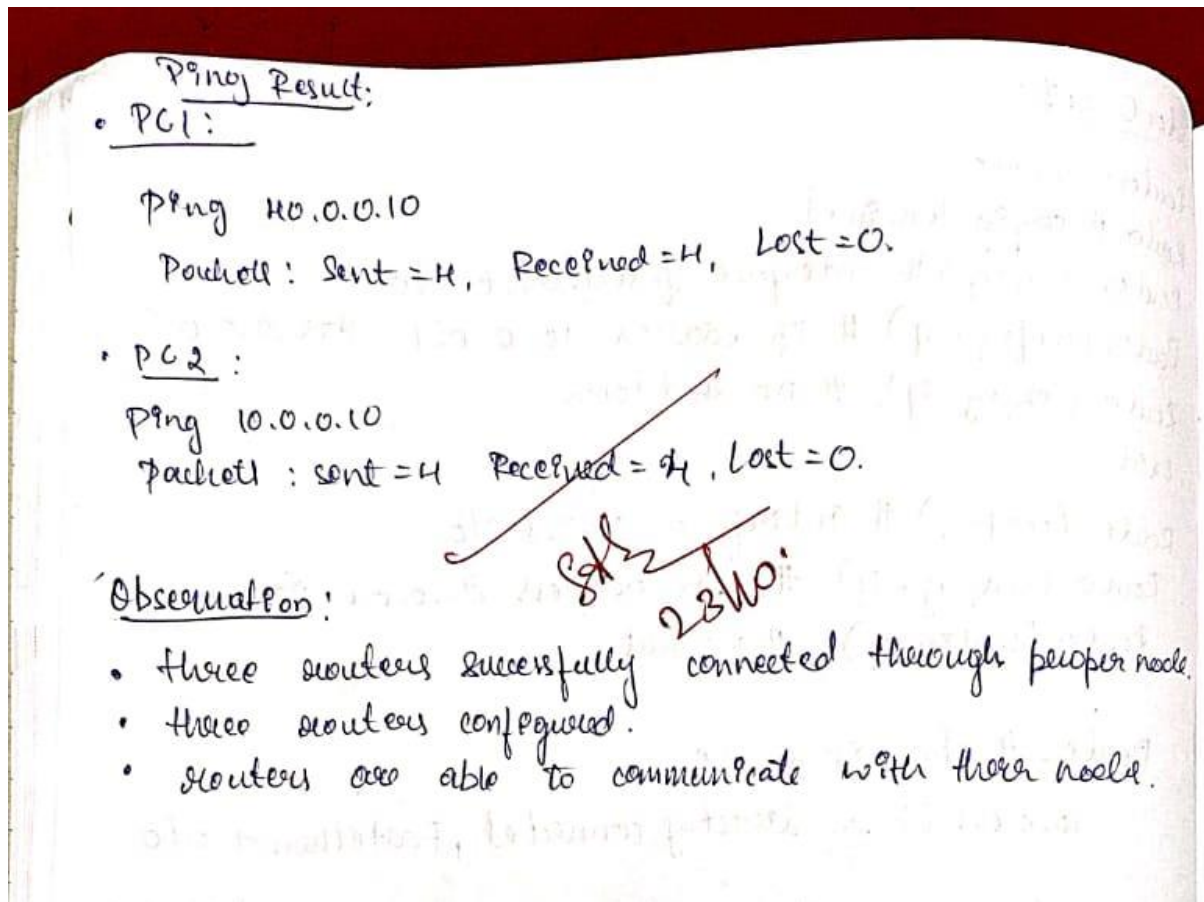 Ping Result:
• PC1:
Ping 40.0.0.10
Packets: Sent = 4, Received = 4, Lost = 0.
• PC2:
Ping 10.0.0.10
Packets: sent = 4 Received = 4, Lost = 0.
23/10.
Observation:
• three routers successfully connected through proper node.
• three routers configured.
• routers are able to communicate with there node.